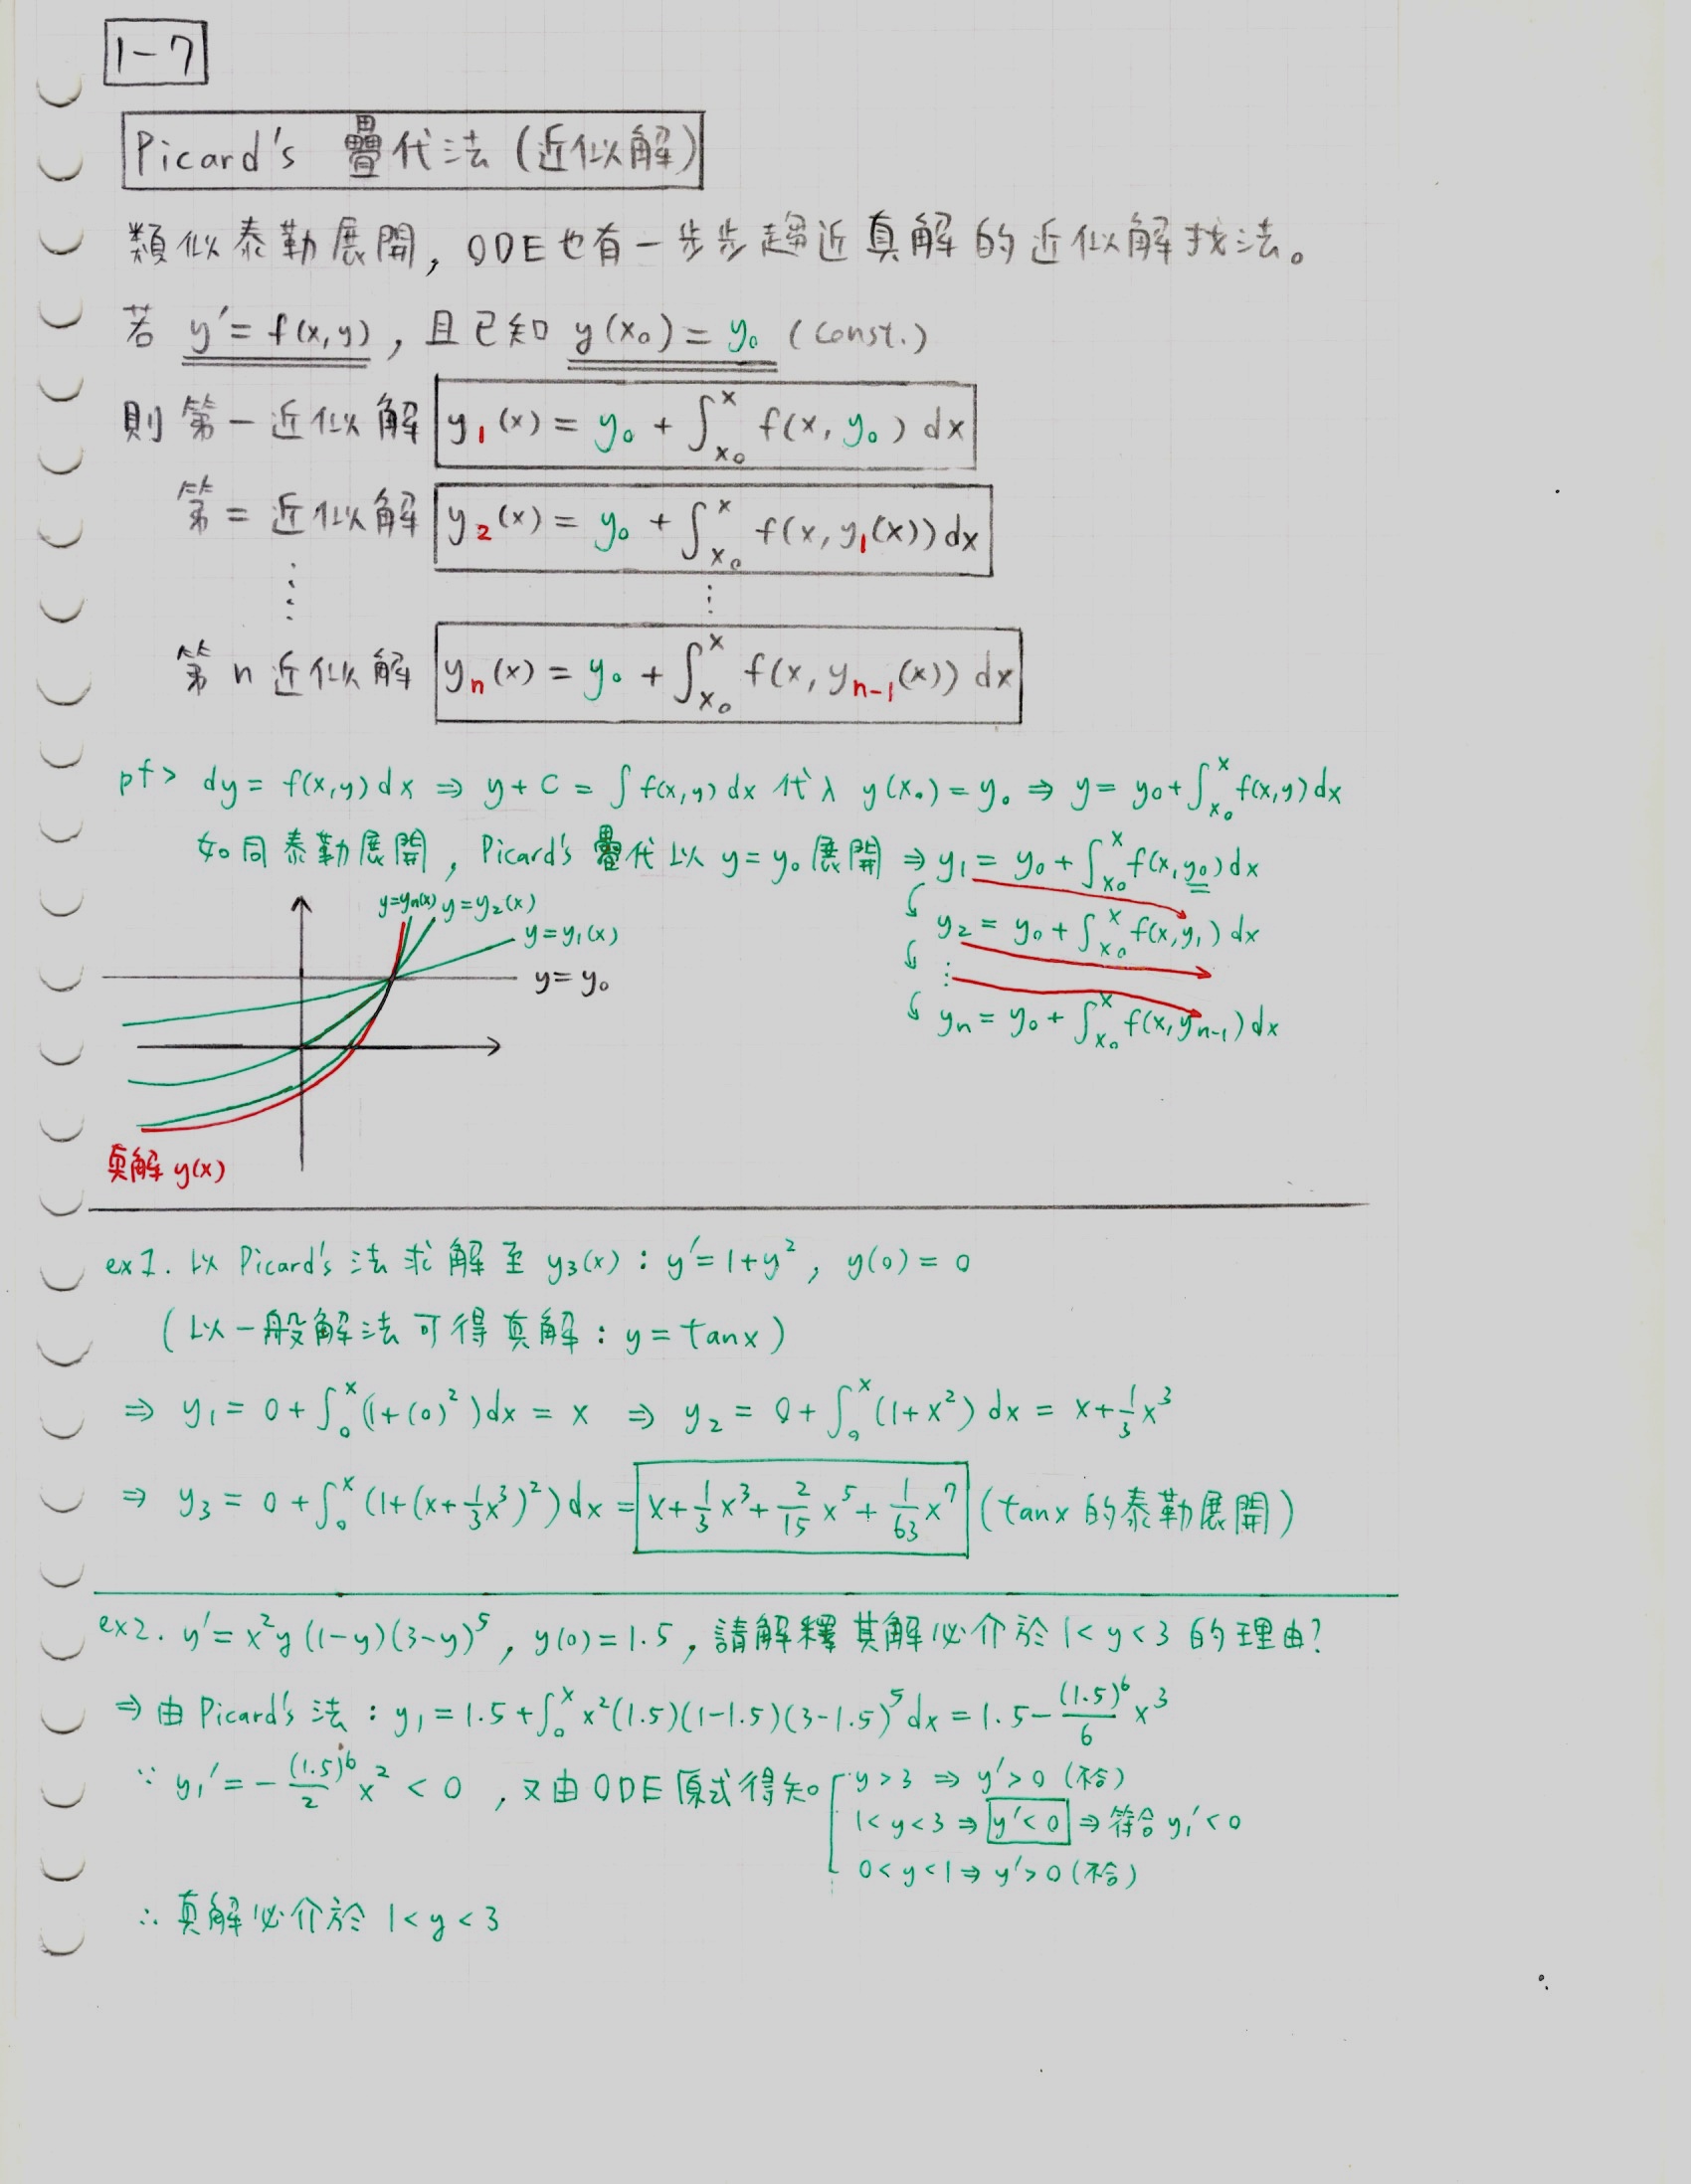 1-7
Picard's 疊代法 (近似解)
類似泰勒展開, ODE也有一步步趨近真解的近似解找法。
若 y' = f(x,y) , 且已知 y(x₀) = y₀ (const.)
則 第一近似解 y₁(x) = y₀ + ∫_{x₀}^{x} f(x, y₀) dx
第二近似解 y₂(x) = y₀ + ∫_{x₀}^{x} f(x, y₁(x)) dx
⋮ ⋮
第 n 近似解 yₙ(x) = y₀ + ∫_{x₀}^{x} f(x, yₙ₋₁(x)) dx
pf> dy = f(x,y) dx ⇒ y + C = ∫ f(x,y) dx 代入 y(x₀) = y₀ ⇒ y = y₀ + ∫_{x₀}^{x} f(x,y) dx
如同泰勒展開, Picard's 疊代以 y = y₀ 展開 ⇒ y₁ = y₀ + ∫_{x₀}^{x} f(x, y₀) dx
y₂ = y₀ + ∫_{x₀}^{x} f(x, y₁) dx
⋮
yₙ = y₀ + ∫_{x₀}^{x} f(x, yₙ₋₁) dx
y=yₙ(x) y=y₂(x)
y=y₁(x)
y = y₀
真解 y(x)
ex1. 以 Picard's 法求解至 y₃(x) : y' = 1+y², y(0) = 0
(以一般解法可得真解 : y = tanx)
⇒ y₁ = 0 + ∫₀^{x} (1+(0)²) dx = x ⇒ y₂ = 0 + ∫₀^{x} (1+x²) dx = x + 1/3 x³
⇒ y₃ = 0 + ∫₀^{x} (1+(x+1/3 x³)²) dx = x + 1/3 x³ + 2/15 x⁵ + 1/63 x⁷ (tanx 的泰勒展開)
ex2. y' = x²y (1-y)(3-y)⁵, y(0) = 1.5, 請解釋其解必介於 1<y<3 的理由?
⇒ 由 Picard's 法 : y₁ = 1.5 + ∫₀^{x} x²(1.5)(1-1.5)(3-1.5)⁵ dx = 1.5 - (1.5)⁶/6 x³
∵ y₁' = - (1.5)⁶/2 x² < 0 , 又由 ODE 原式得知 y>3 ⇒ y'>0 (不合)
1<y<3 ⇒ y'<0 ⇒ 符合 y₁'<0
0<y<1 ⇒ y'>0 (不合)
∴ 真解必介於 1<y<3